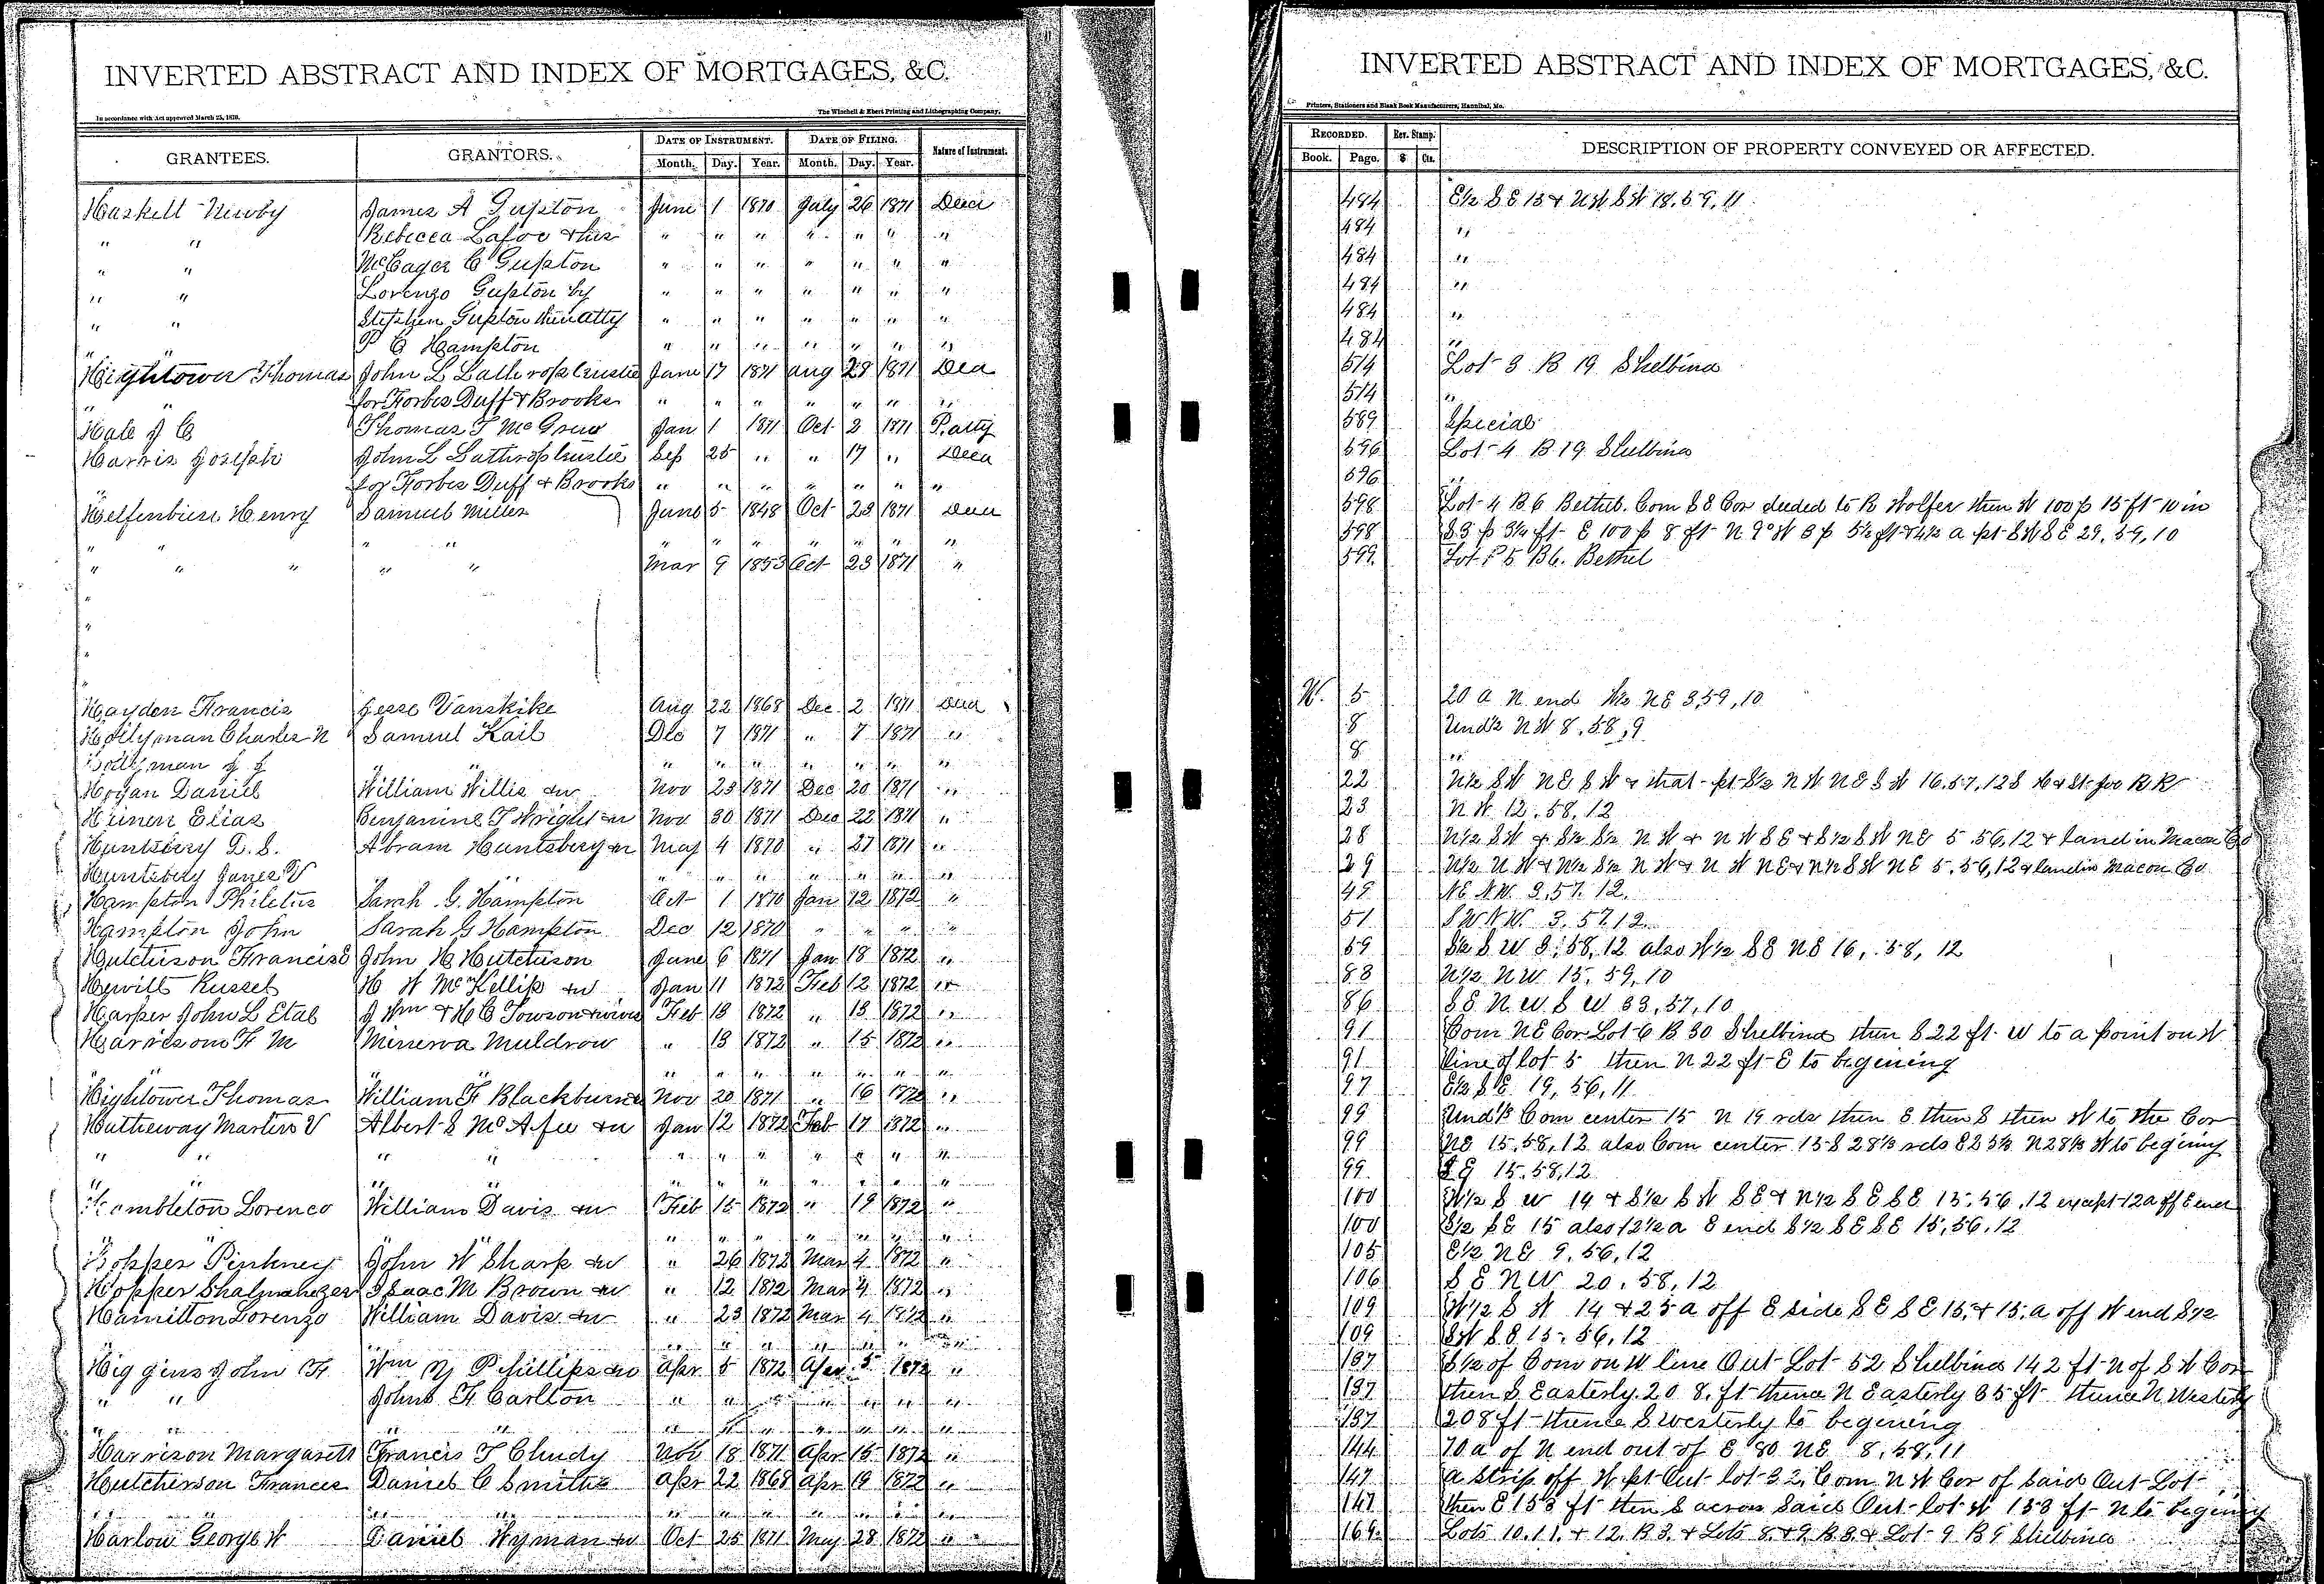 INVERTED ABSTRACT AND INDEX OF MORTGAGES, &C.
In accordance with Act approved March 25, 1870.
The Winchell & Ebert Printing and Lithographing Company,
GRANTEES. GRANTORS. DATE OF INSTRUMENT. DATE OF FILING. Nature of Instrument.
Month. Day. Year. Month. Day. Year.
Haskell Newby James A Gupton June 1 1870 July 26 1871 Deed
" " Rebecca Lafoe & hus " " " " " " "
" " McCager C Gupton " " " " " " "
" " Lorenzo Gupton by " " " " " " "
" " Stephen Gupton their atty " " " " " " "
" " P C Hampton " " " " " " "
Hightower Thomas John L Lathrop trustee June 17 1871 Aug 28 1871 Deed
" " for Forbes Duff & Brooks " " " " " " "
Hale J C Thomas T McGrew Jan 1 1871 Oct 2 1871 P. atty
Harris Joseph John L Lathrop trustee Sep 25 " " 17 " Deed
for Forbes Duff & Brooks " " " " " " "
Helfenbien Henry Samuel Miller June 5 1848 Oct 23 1871 Deed
" " " " " " " " " " "
" " " " " Mar 9 1853 Oct 23 1871 "
"
"
"
Hayden Francis Jesse Vanskike Aug 22 1868 Dec 2 1871 Deed
Hollyman Charles N Samuel Kail Dec 7 1871 " 7 1871 "
Hollyman J J " " " " " " " " "
Hogan Daniel William Willis & w Nov 23 1871 Dec 20 1871 "
Heinen Elias Benjamine T Wright & w Nov 30 1871 Dec 22 1871 "
Huntsbery D. S. Abram Huntsberry & w May 4 1870 " 27 1871 "
Huntsbery James V " " " " " " " " "
Hampton Philetus Sarah G. Hampton Oct 1 1870 Jan 12 1872 "
Hampton John Sarah G Hampton Dec 12 1870 " " " "
Hutchison Francis E John H Hutchison June 6 1871 Jan 18 1872 "
Hewitt Russel H W McKellip & w Jan 11 1872 Feb 12 1872 "
Harper John L Etal J Wm & H C Towson & wives Feb 13 1872 " 13 1872 "
Harrison F M Minerva Muldrow " 13 1872 " 15 1872 "
" " " " " " " "
Hightower Thomas William F Blackburne Nov 20 1871 " 16 1872 "
Hatheway Martin V Albert S McAfee & w Jan 12 1872 Feb 17 1872 "
" " " " " " " " " " "
" " " " " " " " " " "
Hambleton Lorenco William Davis & w Feb 15 1872 " 19 1872 "
" " " " " " " " " "
Hopper Pinkney John W Sharp & w " 26 1872 Mar 4 1872 "
Hopper Shalmanezer Isaac M Brown & w " 12 1872 Mar 4 1872 "
Hamilton Lorenzo William Davis & w " 23 1872 Mar 4 1872 "
" " " " " " "
Higgins John H Wm N Phillips & w Apr 5 1872 Apr 5 1872 "
" " John H Carlton " " " " " " "
" " " " " " " " " " "
Harrison Margarett Francis T Chudy Nov 18 1871 Apr 15 1872 "
Hutcherson Frances Daniel C Smith Apr 22 1868 Apr 19 1872 "
" " " " " " " " " " "
Harlow George W Daniel Wyman & w Oct 25 1871 May 28 1872 "
INVERTED ABSTRACT AND INDEX OF MORTGAGES, &C.
Printers, Stationers and Blank Book Manufacturers, Hannibal, Mo.
RECORDED. Rev. Stamp. DESCRIPTION OF PROPERTY CONVEYED OR AFFECTED.
Book. Page. $ Cts.
484 E½ S E 13 & N W S W 18. 59, 11
484 "
484 "
484 "
484 "
484 "
514 Lot 3 B 19 Shelbina
514 "
589 Special
596 Lot 4 B 19 Shelbina
596 "
598 Lot 4 B 6 Bethel. Com S E Cor deeded to R Wolfer then W 100 p 15 ft 10 in
598 S 3 p 3¼ ft E 100 p 8 ft N 9° W 3 p 5½ ft & 4½ a pt S W S E 29, 59, 10
599 Lot 5 B 6. Bethel
W. 5 20 a N end W½ N E 3, 59, 10
8 Und½ N W 8, 58, 9
8 "
22 N½ S W N E S W & that pt S½ N W N E S W 16, 57, 12 S H & St Joe R R
23 N W 12, 58, 12
28 N½ S W & S½ S½ N W & N W S E & S½ S W N E 5, 56, 12 & land in Macon Co
29 N½ N W & N½ S½ N W & N W N E & N½ S W N E 5, 56, 12 & land in Macon Co
49 N E N W. 3, 57, 12.
51 S W N W. 3, 57, 12.
59 S½ S W 3, 58, 12 also W½ S E N E 16, 58, 12
83 N½ N W 15, 59, 10
86 S E N W S W 33, 57, 10
91 Com N E Cor Lot 6 B 30 Shelbina then S 22 ft W to a point on W
91 line of lot 5 then N 22 ft E to begening
97 E½ S E 19, 56, 11
99 Und⅓ Com center 15 N 19 rds then E then S then W to the Cor
99 N E 15, 58, 12 also Com center 15 S 28⅓ rds E 25¼ N 28⅓ W to begining
99 S E 15, 58, 12
100 W½ S W 14 & S½ S W S E & N½ S E S E 15, 56, 12 except 12 a off E end
100 S½ S E 15 also 12½ a E end S½ S E S E 15, 56, 12
105 E½ N E 9, 56, 12
106 S E N W 20, 58, 12
109 W½ S W 14 & 25 a off E side S E S E 15, & 15 a off W end S½
109 S W S E 15, 56, 12
137 S½ of Com on W line Out Lot 52 Shelbina 142 ft N of S W Cor
137 then S Easterly 208 ft thence N Easterly 35 ft thence N Westerly
137 208 ft thence S westerly to begening
144 70 a of N end out of E 80 N E 8, 58, 11
147 A strip off W pt Out lot 32, Com N W Cor of said Out Lot
147 then E 153 ft then S across said Out lot W 153 ft N to begening
169 Lots 10, 11, & 12, B 3, & Lots 8 & 9 B 8 & Lot 9 B 9 Shelbina